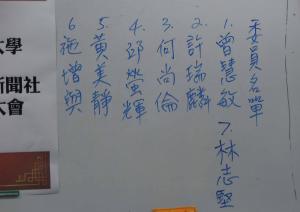 委員名單
1. 曾慧敏
7. 林志堅
2. 許瑞麟
3. 何尚倫
4. 邱螢輝
5. 黃美靜
6. 施增興
大學
新聞社
大會